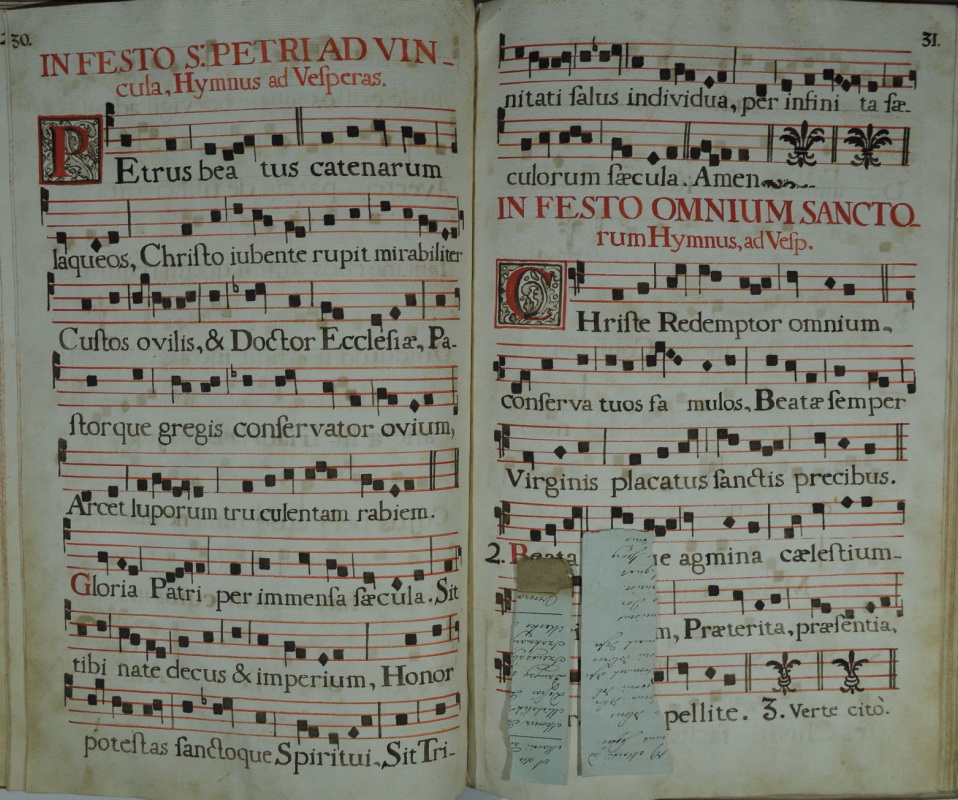 30.
IN FESTO S: PETRI AD VIN-
cula, Hymnus ad Veſperas.
PEtrus bea tus catenarum
laqueos, Chriſto iubente rupit mirabiliter
Cuſtos ovilis, & Doctor Eccleſiæ, Pa-
ſtorque gregis conſervator ovium,
Arcet luporum tru culentam rabiem.
Gloria Patri per immenſa ſæcula. Sit
tibi nate decus & imperium, Honor
poteſtas ſanctoque Spiritui, Sit Tri-
31.
nitati ſalus individua, per infini ta ſæ-
culorum ſæcula. Amen
IN FESTO OMNIUM SANCTO-
rum Hymnus, ad Veſp.
CHriſte Redemptor omnium,
conſerva tuos fa mulos, Beatæ ſemper
Virginis placatus ſanctis precibus.
2. Beata agmina cæleſtium
Præterita, præſentia,
pellite. 3. Verte citò.